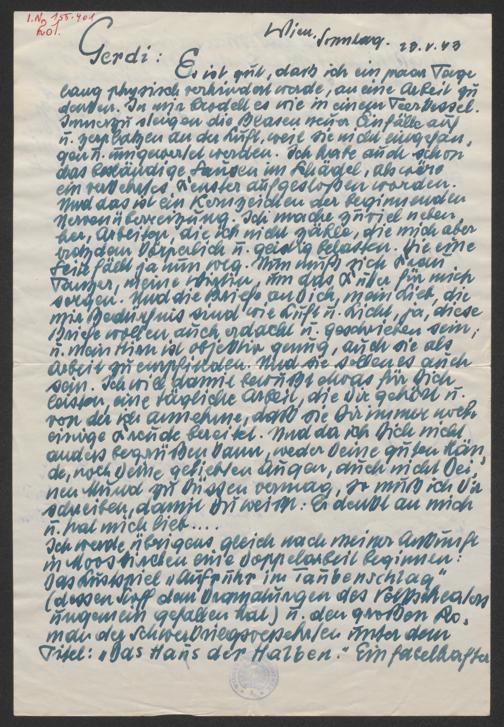 I.N. 155.401
201.
Wien, Sonntag. 23.V.43
Gerdi: Es ist gut, dass ich ein paar Tage
lang physisch verhindert werde, an eine Arbeit zu
denken. In mir brodelt es wie in einem Teerkessel.
Immerzu steigen die Blasen neuer Einfälle auf
u. zerplatzen an der Luft, weil sie nicht eingefan-
gen u. umgewertet werden. Ich habe auch schon
das beständige Sausen im Schädel, als wäre
ein verkehrtes Fenster aufgestossen worden.
Und das ist ein Kennzeichen der beginnenden
Nervenüberreizung. Ich mache zuviel neben-
her, Arbeiten, die ich nicht zähle, die mich aber
trotzdem körperlich u. geistig belasten. Die eine
fällt ja nun weg. Nun muss sich Frau
Tanzer, meine Wirtin, um das für mich
sorgen. Und die Briefe an Dich, mein Lieb, die
mir Bedürfnis sind wie Luft u. Licht, ja, diese
Briefe wollen auch erdacht u. geschrieben sein,
u. mein Hirn ist objektiv genug, auch sie als
Arbeit zu empfinden. Und sie sollen es auch
sein. Ich will damit bewusst etwas für Dich
leisten, eine tägliche Arbeit, die Dir gehört u.
von der ich annehme, dass sie Dir immer noch
einige Freude bereitet. Und da ich Dich nicht
anders begrüssen kann, weder Deine guten Hän-
de, noch Deine geliebten Augen, auch nicht Dei-
nen Mund zu küssen vermag, so muss ich Dir
schreiben, damit Du weisst: Er denkt an mich
u. hat mich lieb....
Ich werde übrigens gleich nach meiner Ankunft
in Mooskirchen eine Doppelarbeit beginnen:
Das Lustspiel „Aufruhr im Taubenschlag"
(dessen Stoff dem Dramaturgen des Volkstheaters
ungemein gefallen hat) u. den grossen Ro-
man der Schwerkriegsversehrten unter dem
Titel: „Das Haus der Halben." Ein fabelhafter